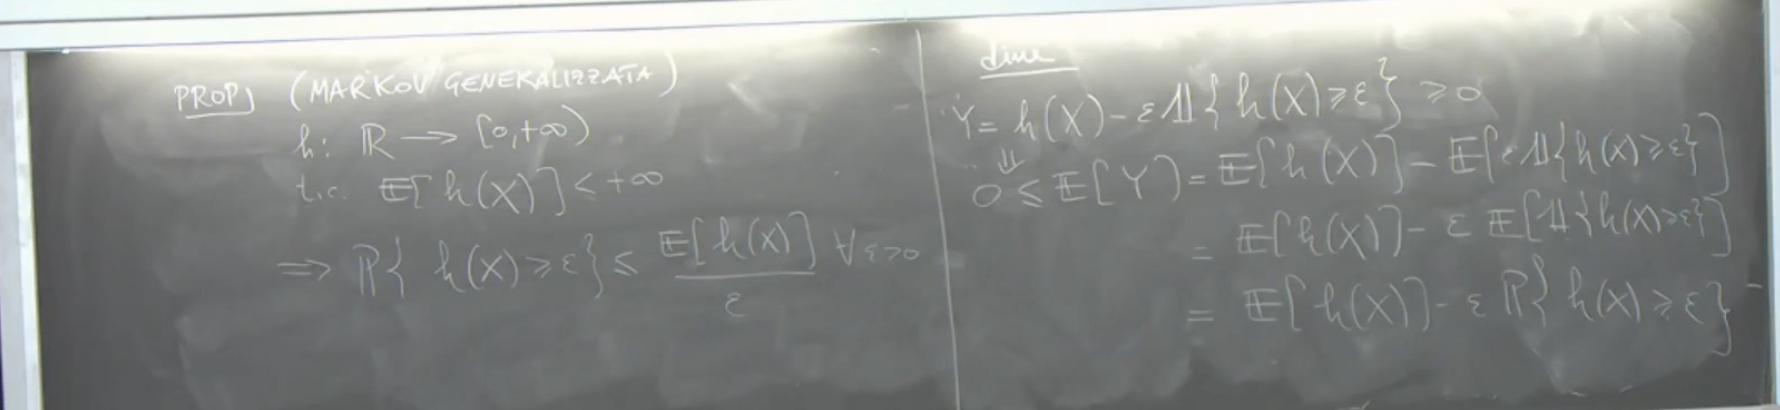 PROP) (MARKOV GENERALIZZATA)
h: ℝ → [0,+∞)
t.c. 𝔼[h(X)] < +∞
⇒ ℙ{ h(X) ≥ ε} ≤ 𝔼[h(X)] / ε ∀ε>0
dim
Y = h(X) - ε 𝟙{ h(X) ≥ ε} ≥ 0
⇓
0 ≤ 𝔼[Y] = 𝔼[h(X)] - 𝔼[ε 𝟙{h(X) ≥ ε}]
= 𝔼[h(X)] - ε 𝔼[𝟙{h(X) ≥ ε}]
= 𝔼[h(X)] - ε ℙ{ h(X) ≥ ε}